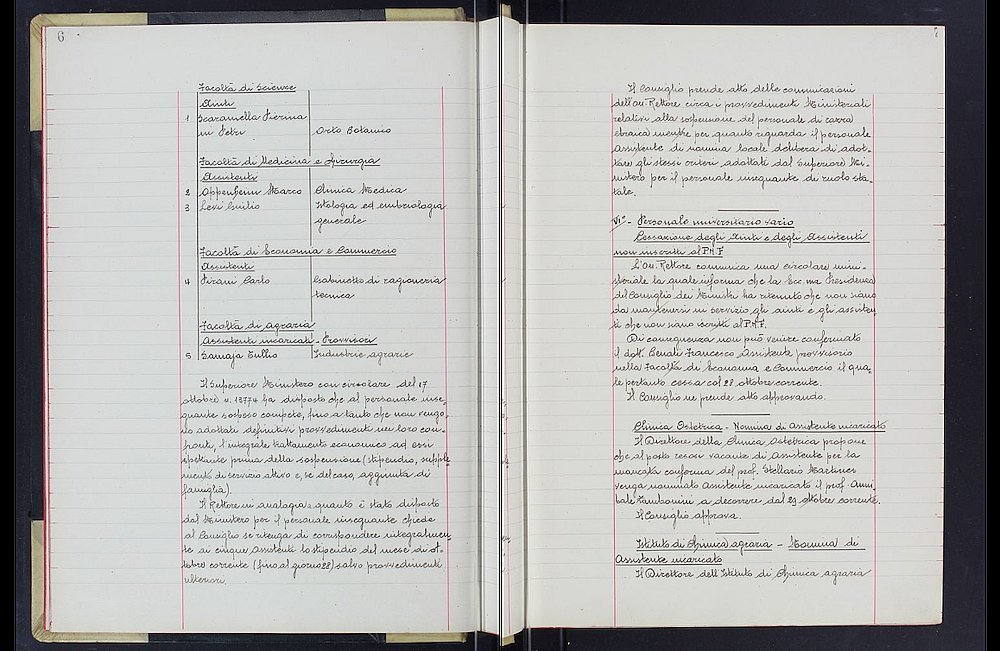 6
Facoltà di Scienze
Aiuti
1 Scaramella Pierina
in Petri Orto Botanico
Facoltà di Medicina e Chirurgia
Assistenti
2 Oppenheim Marco Clinica Medica
3 Levi Giulio Istologia ed embriologia
generale
Facoltà di Economia e Commercio
Assistenti
4 Pirani Carlo Gabinetto di ragioneria
tecnica
Facoltà di Agraria
Assistenti incaricati - Provvisori
5 Samaja Tullio Industrie agrarie
Il Superiore Ministero con circolare del 17
ottobre n. 13774 ha disposto che al personale inse-
gnante sospeso compete, fino a tanto che non vengo-
no adottati definitivi provvedimenti nei loro con-
fronti, l'integrale trattamento economico ad essi
spettante prima della sospensione (stipendio, supple
mento di servizio attivo e, se del caso, aggiunta di
famiglia).
Il Rettore in analogia a quanto è stato disposto
dal Ministero per il personale insegnante chiede
al Consiglio se ritenga di corrispondere integralmen
te ai cinque assistenti lo stipendio del mese di ot-
tobre corrente (fino al giorno 28) salvo provvedimenti
ulteriori.
7
Il Consiglio prende atto delle comunicazioni
dell'On. Rettore circa i provvedimenti Ministeriali
relativi alla sospensione del personale di razza
ebraica mentre per quanto riguarda il personale
assistente di nomina locale delibera di adot-
tare gli stessi criteri adottati dal Superiore Mi-
nistero per il personale insegnante di ruolo sta-
tale.
VIº - Personale universitario vario
Cessazione degli Aiuti e degli Assistenti
non inscritti al P.N.F.
L'On. Rettore comunica una circolare mini-
steriale la quale informa che la Ecc.ma Presidenza
del Consiglio dei Ministri ha ritenuto che non siano
da mantenersi in servizio gli aiuti e gli assisten
ti che non siano iscritti al P.N.F.
Di conseguenza non può venire confermato
il dott. Benati Francesco Assistente provvisorio
nella Facoltà di Economia e Commercio il qua-
le pertanto cessa col 28 ottobre corrente.
Il Consiglio ne prende atto approvando.
Clinica Ostetrica - Nomina di Assistente incaricato
Il Direttore della Clinica Ostetrica propone
che al posto resosi vacante di Assistente per la
mancata conferma del prof. Stellario Martines
venga nominato Assistente incaricato il prof. Anni
bale Zambonini a decorrere dal 29 ottobre corrente.
Il Consiglio approva.
Istituto di Chimica agraria - Nomina di
Assistente incaricato
Il Direttore dell'Istituto di Chimica agraria